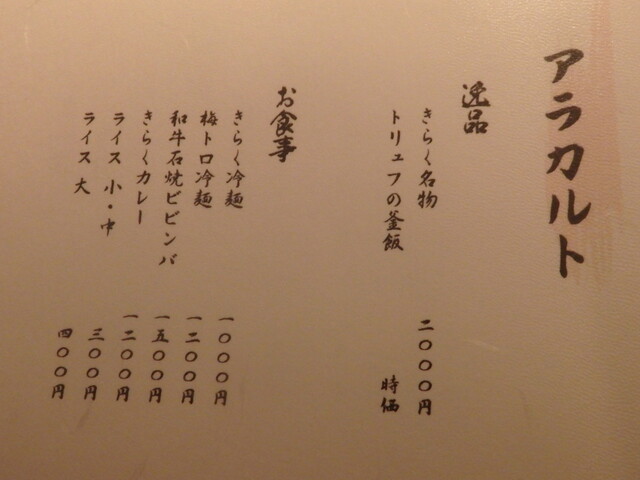 アラカルト
逸品
きらく名物 二〇〇〇円
トリュフの釜飯 時価
お食事
きらく冷麺 一〇〇〇円
梅トロ冷麺 一二〇〇円
和牛石焼ビビンバ 一五〇〇円
きらくカレー 一二〇〇円
ライス 小・中 三〇〇円
ライス 大 四〇〇円